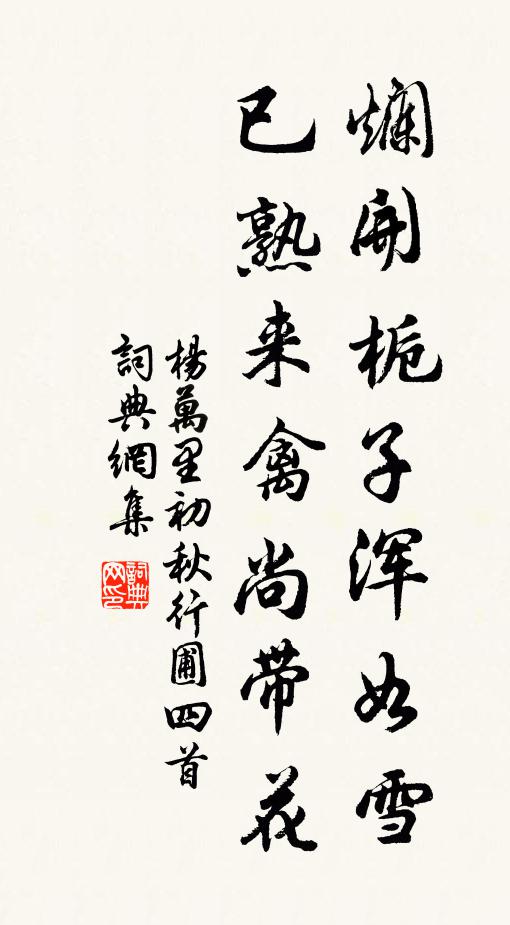 爛開栀子浑如雪
已熟来禽尚带花
楊萬里初秋行圃四首
詞典網集
詞典
网印